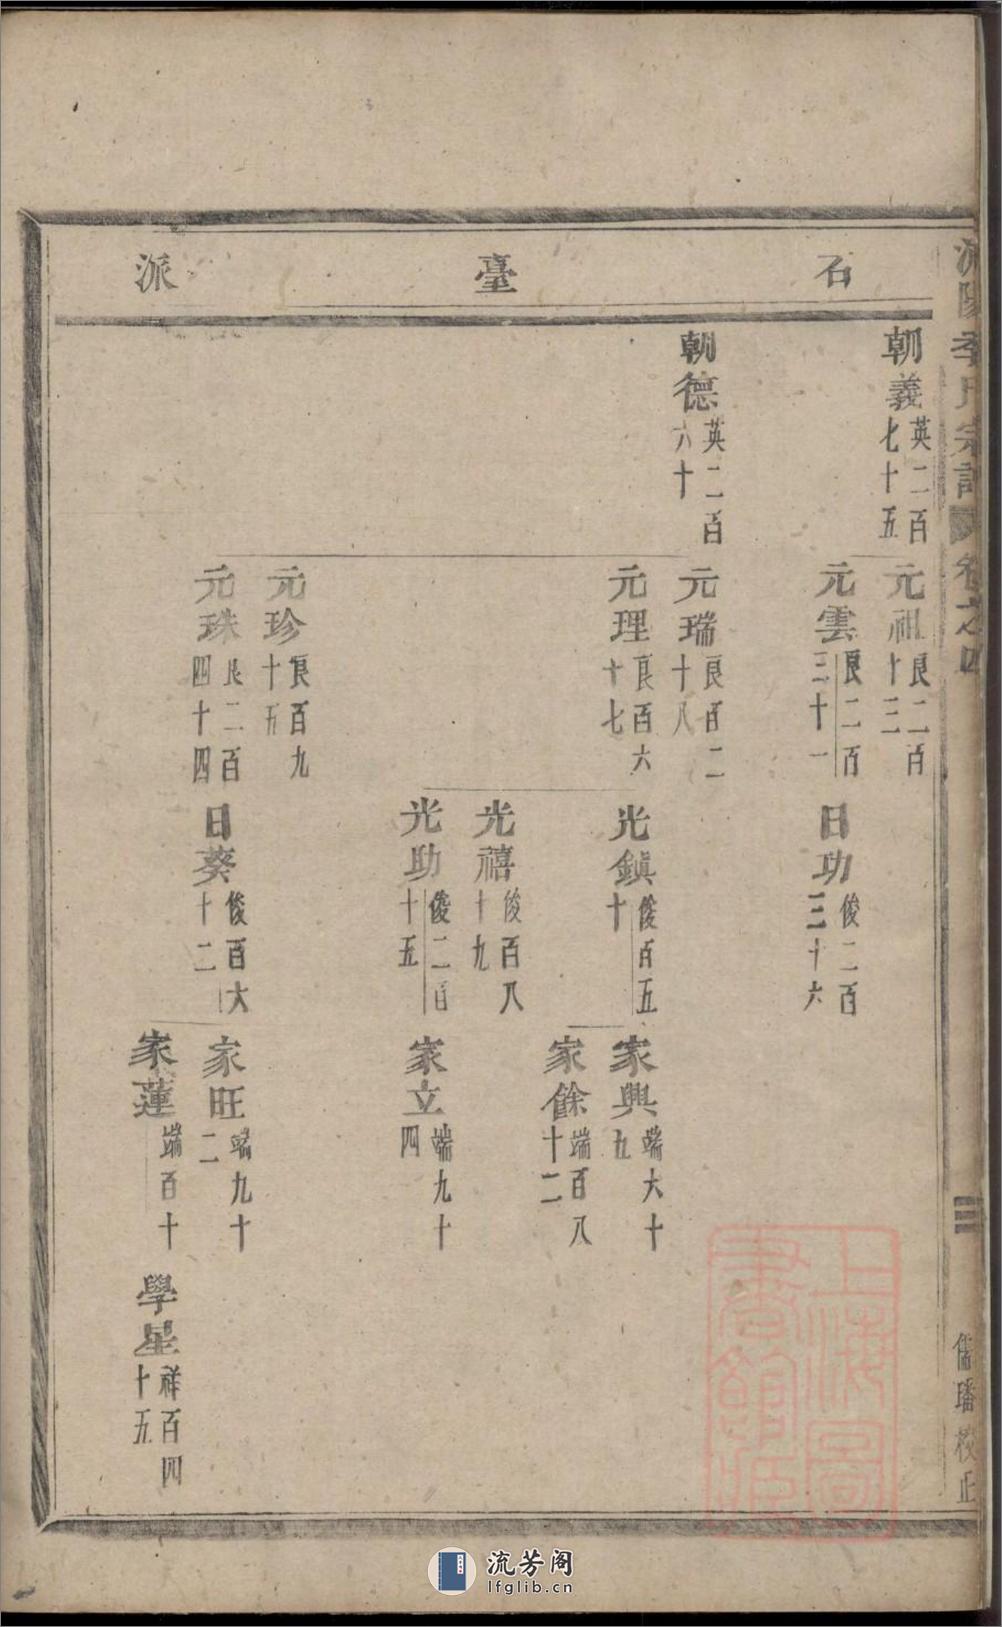 季氏宗譜 卷之四
三
儒璠校正
石臺派
朝義 英二百七十五
朝德 英二百六十
元祖 良二百十三
元雲 良二百三十一
元瑞 良百二十八
元理 良百六十七
元珍 良百九十五
元珠 良二百四十四
日功 俊二百三十六
光鎮 俊百五十
光禧 俊百八十九
光助 俊二百十五
日葵 俊百六十二
家興 端六十五
家餘 端百八十二
家立 端九十四
家旺 端九十二
家蓮 端百十
學星 祥百四十五
上海圖書館藏
流芳阁
lfglib.cn